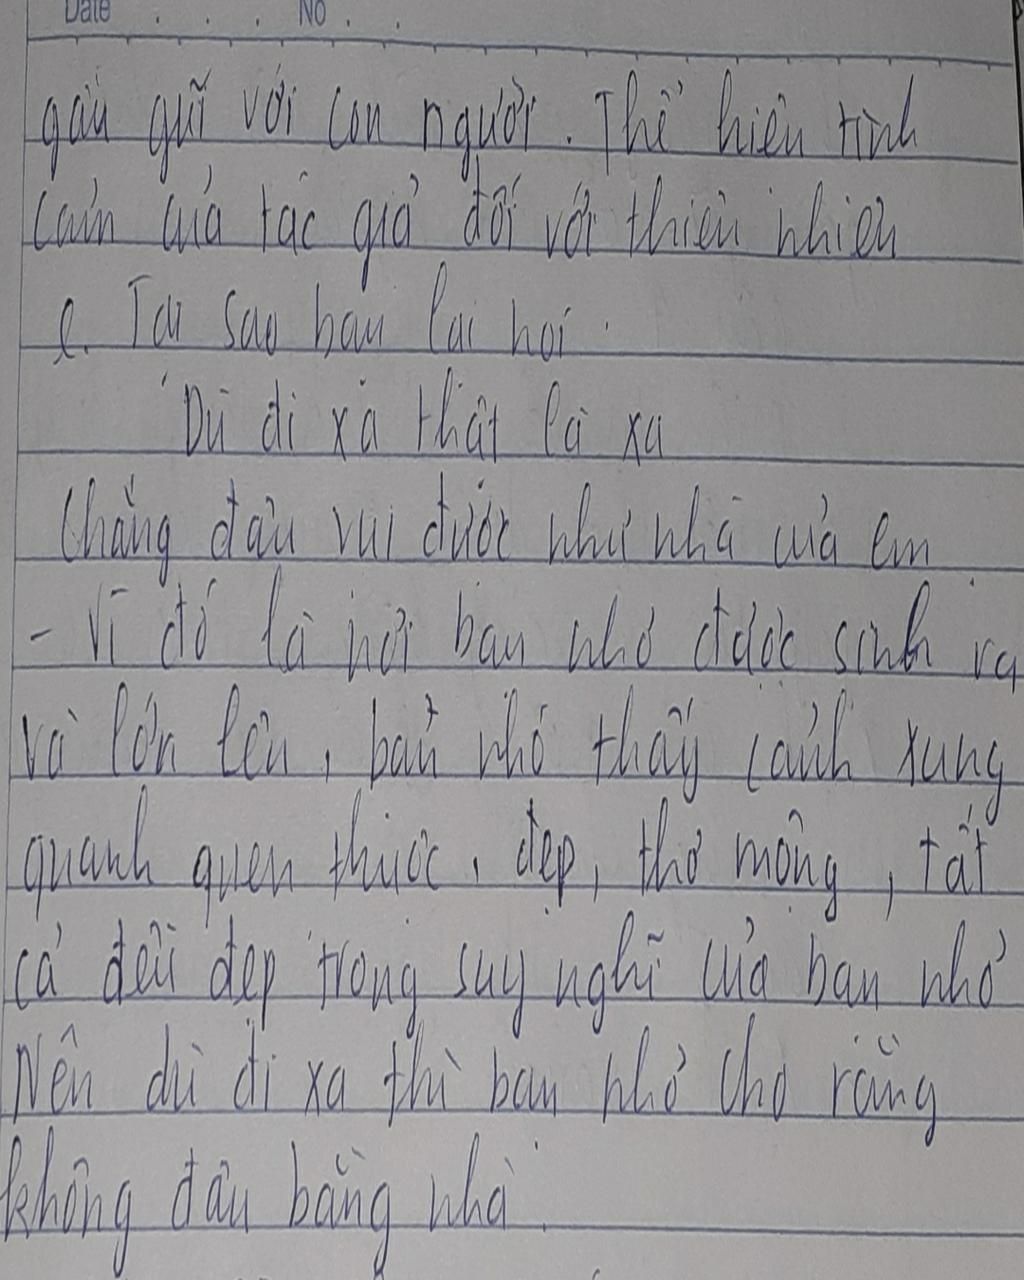 Date No
gần gũi với con người. Thể hiện tình
cảm của tác giả đối với thiên nhiên
e. Tại sao bạn lại nói
Dù đi xa thật là xa
Chẳng đâu vui được như nhà của em
- Vì đó là nơi bạn nhỏ được sinh ra
và lớn lên, bạn nhỏ thấy cảnh xung
quanh quen thuộc, đẹp, thơ mộng, tất
cả đều đẹp trong suy nghĩ của bạn nhỏ
Nên dù đi xa thì bạn nhỏ cho rằng
không đâu bằng nhà.